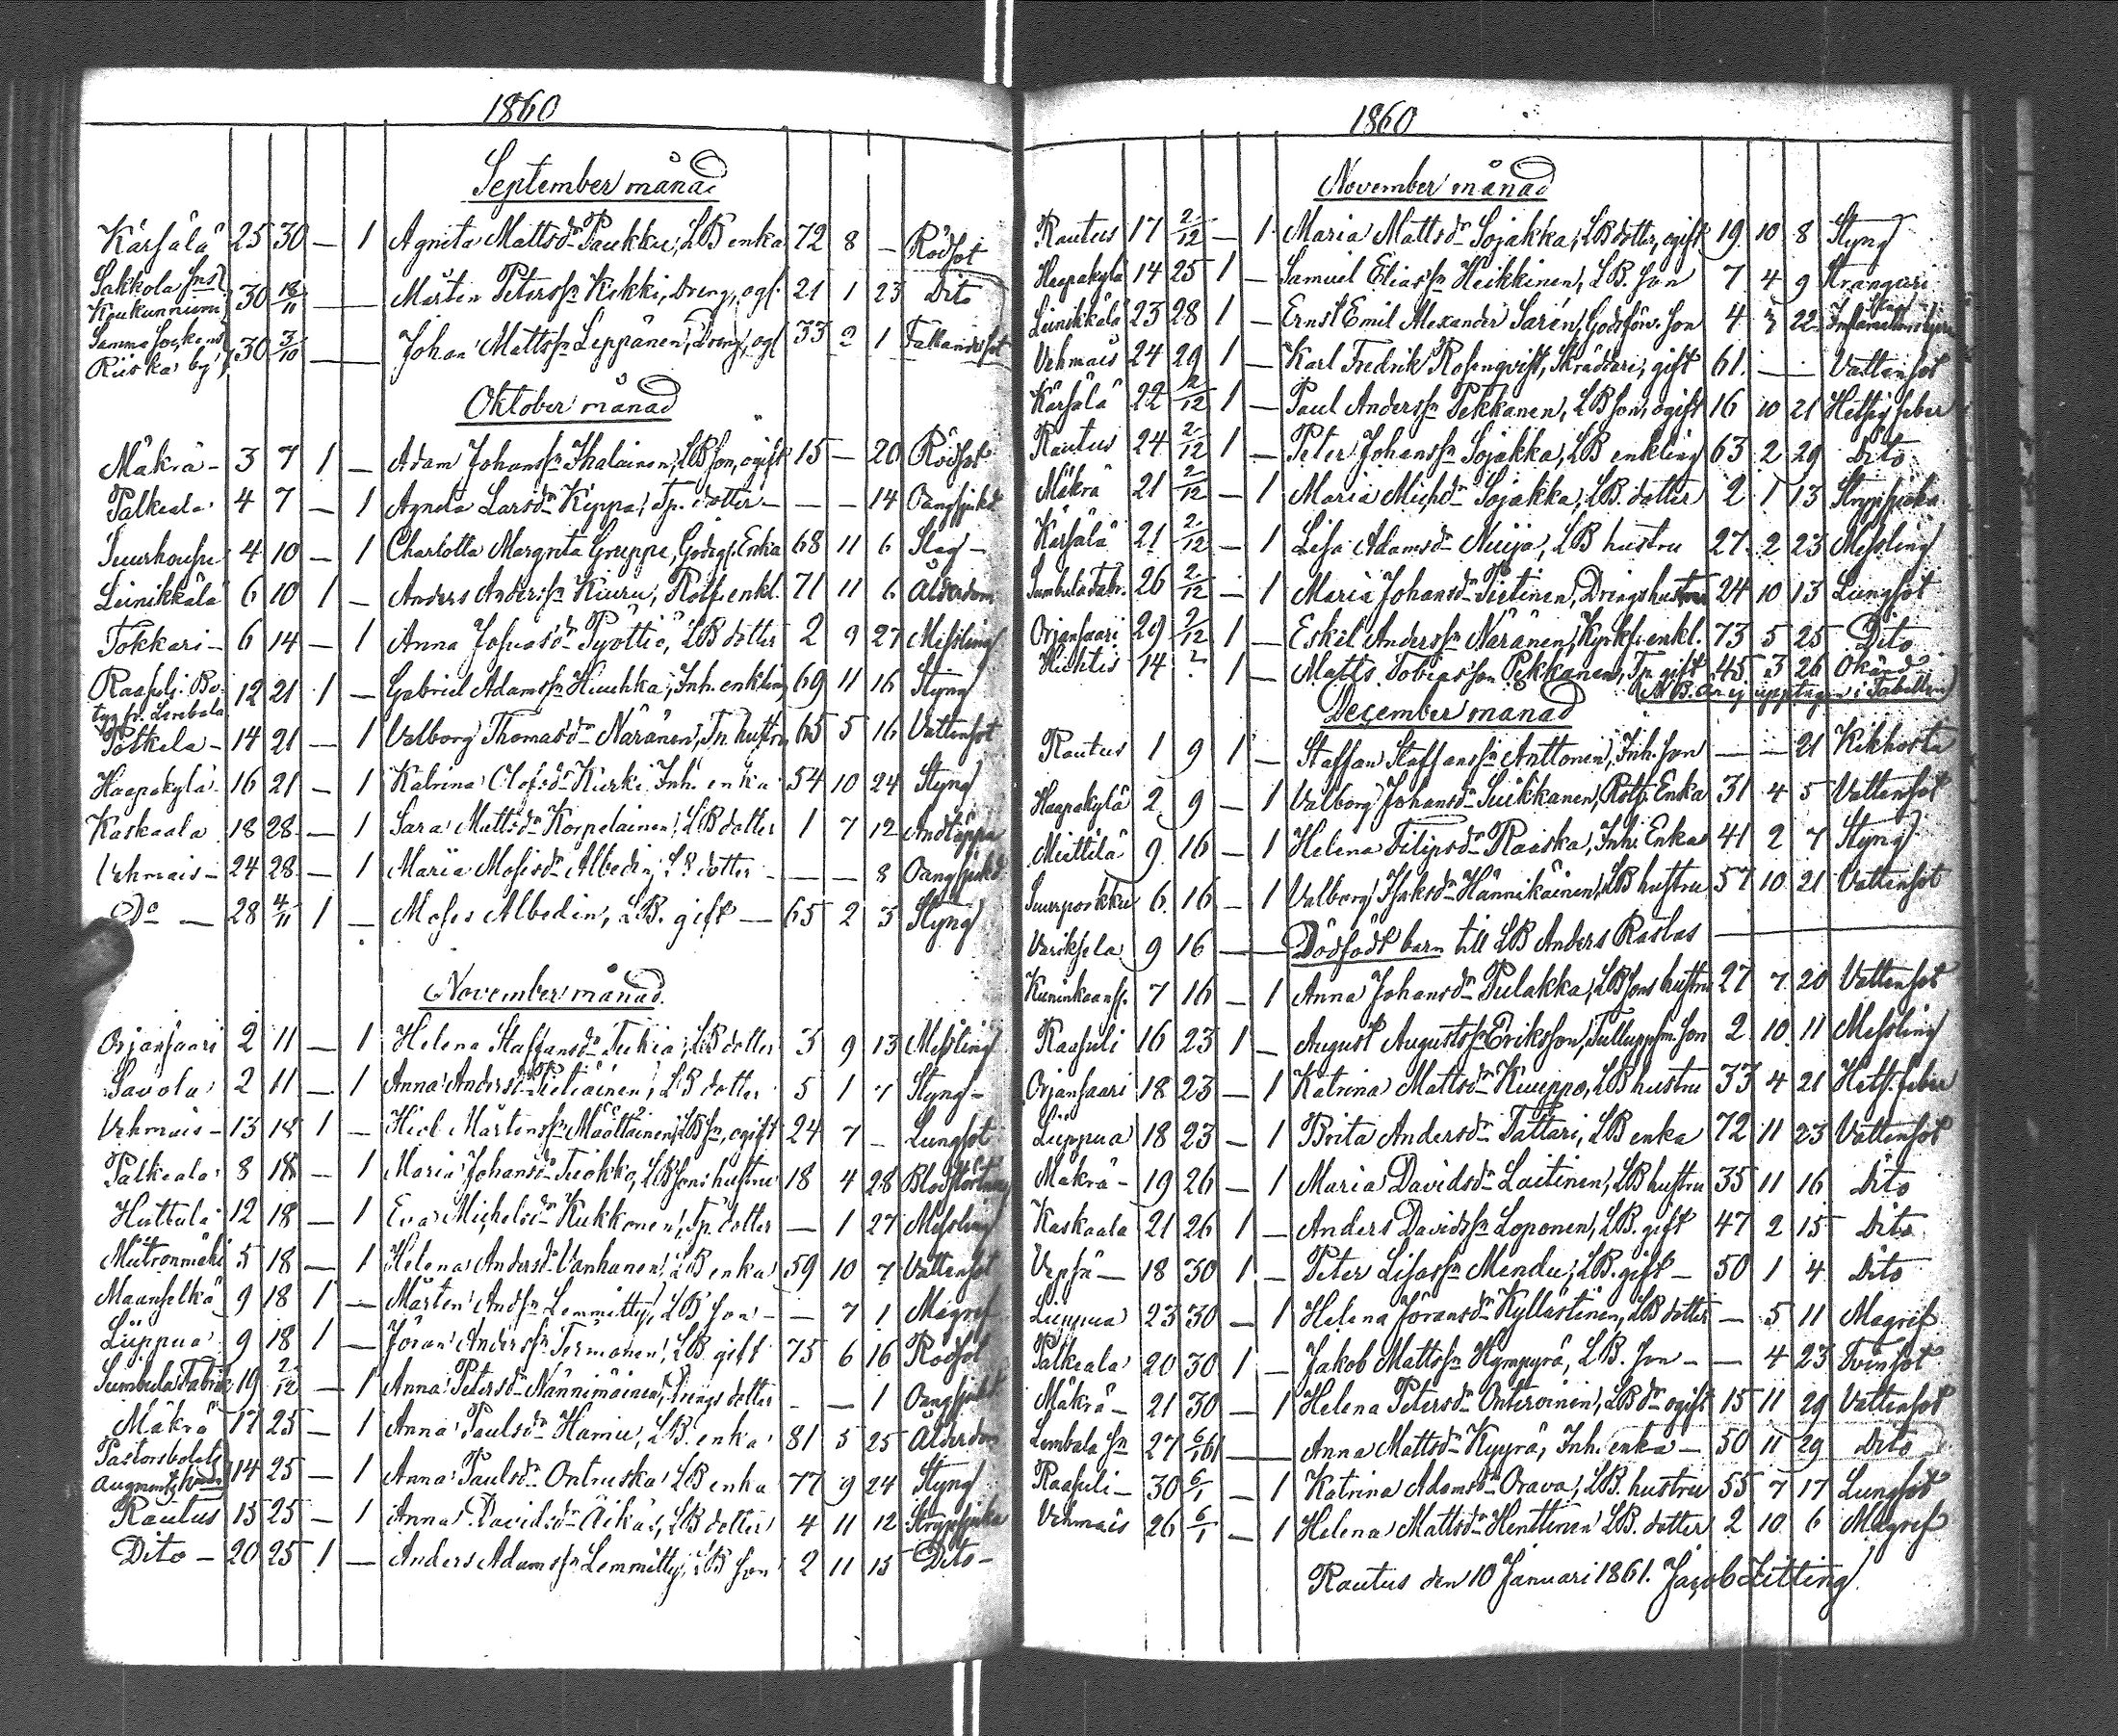 1860
September månad
Kärsälä 25 30 — 1 Agneta Mattsdr Paukku, LB enka 72 8 — Rödsot
Sakkola sn
Koukunniemi 30 18/11 — Mårten Peterssn Kekki, Dreng, ogf. 21 1 23 Dito
Samma Sockens
Riiska by 30 3/10 — Johan Mattssn Leppänen, Dreng, ogf 33 2 1 Fallandesot
Oktober månad
Mäkrä – 3 7 1 — Adam Johanssn Ihalainen, LB son, ogift 15 — 20 Rödsot
Palkeala 4 7 — 1 Agneta Larsdr Kippa, Tp. dotter — — — 14 Oangsjukd
Suurhousu 4 10 — 1 Charlotta Margreta Gruppe, Godsegs. Enka 68 11 6 Slag –
Leinikkälä 6 10 1 — Anders Anderssn Kiuru, Rotf. enkl. 71 11 6 Ålderdom
Tokkari – 6 14 — 1 Anna Josuasdr Pyöttiö, LB dotter 2 9 27 Messling
Raasuli Bo-
tag fr. Lembala 12 21 1 — Gabriel Adamssn Huuhka, Inh. enkling 69 11 16 Styng
Potkela – 14 21 — 1 Valborg Thomasdr Näränen, Tp. hustru 65 5 16 Vattensot
Haapakylä 16 21 — 1 Katrina Olofsdr Kurki Inh. enka 54 10 24 Styng
Kaskaala 18 28 — 1 Sara Mattsdr Korpelainen, LB dotter 1 7 12 Andtäppa
Vehmais – 24 28 — 1 Maria Mosisdr Albedin, LB dotter — — — 8 Oangsjukd
Do — 28 4/11 1 — Moses Albedin, LB. gift — 65 2 3 Styng
November månad
Orjansaari 2 11 — 1 Helena Staffansdr Tukia, LB dotter 3 9 13 Messling
Savola 2 11 — 1 Anna Andersdr Pietiäinen, LB dotter 5 1 7 Styng –
Vehmais – 13 18 1 — Hiob Mårtenssn Määttäinen, LB sn, ogift 24 7 — Lungsot
Palkeala 8 18 — 1 Maria Johansdr Tuokko, LB sons hustru 18 4 28 Blodstörtning
Huttula 12 18 — 1 Eva Michelsdr Kukkonen, Tp. dotter — 1 27 Messling
Mutronmäki 5 18 — 1 Helena Andersdr Vanhanen, LB enka 59 10 7 Vattensot
Maanselkä 9 18 1 — Mårten Andsn Lemmitty, LB son — — 7 1 Magref
Liippua 9 18 1 — Jöran Anderssn Termonen, LB gift 75 6 16 Rödsot
Sumbula Fabrik 19 2/12 — 1 Anna Petersdr Nännimäinen, Drengs dotter — — 1 Oangsjukd
Mäkrä 17 25 — 1 Anna Paulsdr Hamu, LB. enka 81 5 25 Ålderdom
Pastorsbolets
Augments 14 25 — 1 Anna Paulsdr Ontruska LB enka 77 9 24 Styng
Rautus 15 25 — 1 Anna Davidsdr Äikäs, LB dotter 4 11 12 Strypsjuka
Dito – 20 25 1 — Anders Adamssn Lemmitty, LB son 2 11 15 Dito –
1860
November månad
Rautus 17 2/12 — 1 Maria Mattsdr Sojakka, LB dotter, ogift 19 10 8 Styng
Haapakylä 14 25 1 — Samuel Eliassn Heikkinen, LB. son 7 4 9 Stranguri
Leinikkälä 23 28 1 — Ernst Emil Alexander Sarén, Godsförv. son 4 3 22
Vehmais 24 29 1 — Karl Fredrik Rosenqvist, Skräddare, gift 61 — — Vattensot
Kärsälä 22 2/12 1 — Paul Anderssn Pekkanen, LB son, ogift 16 10 21 Hetsig feber
Rautus 24 2/12 1 — Peter Johanssn Sojakka, LB enkling 63 2 29 Dito
Mäkrä 21 2/12 — 1 Maria Michsdr Sojakka, LB. dotter 2 1 13 Strypsjuka
Kärsälä 21 2/12 — 1 Lisa Adamsdr Nuija, LB hustru 27 2 23 Messling
Sumbula Fabr. 26 2/12 — 1 Maria Johansdr Pietinen, Drengs hustru 24 10 13 Lungsot
Orjansaari 29 2/12 1 — Eskil Anderssn Näränen, Kyrkf. enkl. 73 5 25 Dito
Huhtis 14 ? 1 — Matts Tobiasson Pekkanen, Tp. gift 45 3 26 Okänd
NB. är ej upptagen i Tabellen
December månad
Rautus 1 9 1 — Staffan Staffanssn Anttonen, Inh. son — — 21 Kikhosta
Haapakylä 2 9 — 1 Valborg Johansdr Suikkanen, Rotf. Enka 31 4 5 Vattensot
Miettilä 9 16 — 1 Helena Filipsdr Raaska, Inh. Enka 41 2 7 Styng
Suurporkku 6 16 — 1 Valborg Isaksdr Hännikäinen, LB hustru 57 10 21 Vattensot
Variksela 9 16 — Dödfödt barn till LB Anders Rastas —
Kuninkaans. 7 16 — 1 Anna Johansdr Pulakka, LB sons hustru 27 7 20 Vattensot
Raasuli 16 23 1 — August Augustssn Eriksson, Tulluppsm. son 2 10 11 Messling
Orjansaari 18 23 — 1 Katrina Mattsdr Kuuppo, LB hustru 33 4 21 Hets. feber
Liippua 18 23 — 1 Brita Andersdr Tattari, LB enka 72 11 23 Vattensot
Mäkrä – 19 26 — 1 Maria Davidsdr Laitinen, LB hustru 35 11 16 Dito
Kaskaala 21 26 1 — Anders Davidssn Loponen, LB. gift 47 2 15 Dito
Vepsä — 18 30 1 — Peter Lisassn Mendu, LB. gift — 50 1 4 Dito
Liippua 23 30 — 1 Helena Jöransdr Kyllästinen, LB dotter — 5 11 Magref
Palkeala 20 30 1 — Jakob Mattssn Hympyrä, LB. son — — 4 23 Tvinsot
Mäkrä – 21 30 — 1 Helena Petersdr Onteroinen, LB dr ogift 15 11 29 Vattensot
Lembala sn 27 6/1 61 — Anna Mattsdr Kyyrä, Inh. enka — 50 11 29 Dito
Raasuli – 30 6/1 — 1 Katrina Adamsdr Orava, LB. hustru 55 7 17 Lungsot
Vehmais 26 6/1 — 1 Helena Mattsdr Henttinen LB. dotter 2 10 6 Magref
Rautus den 10 Januari 1861. Jacob Zitting